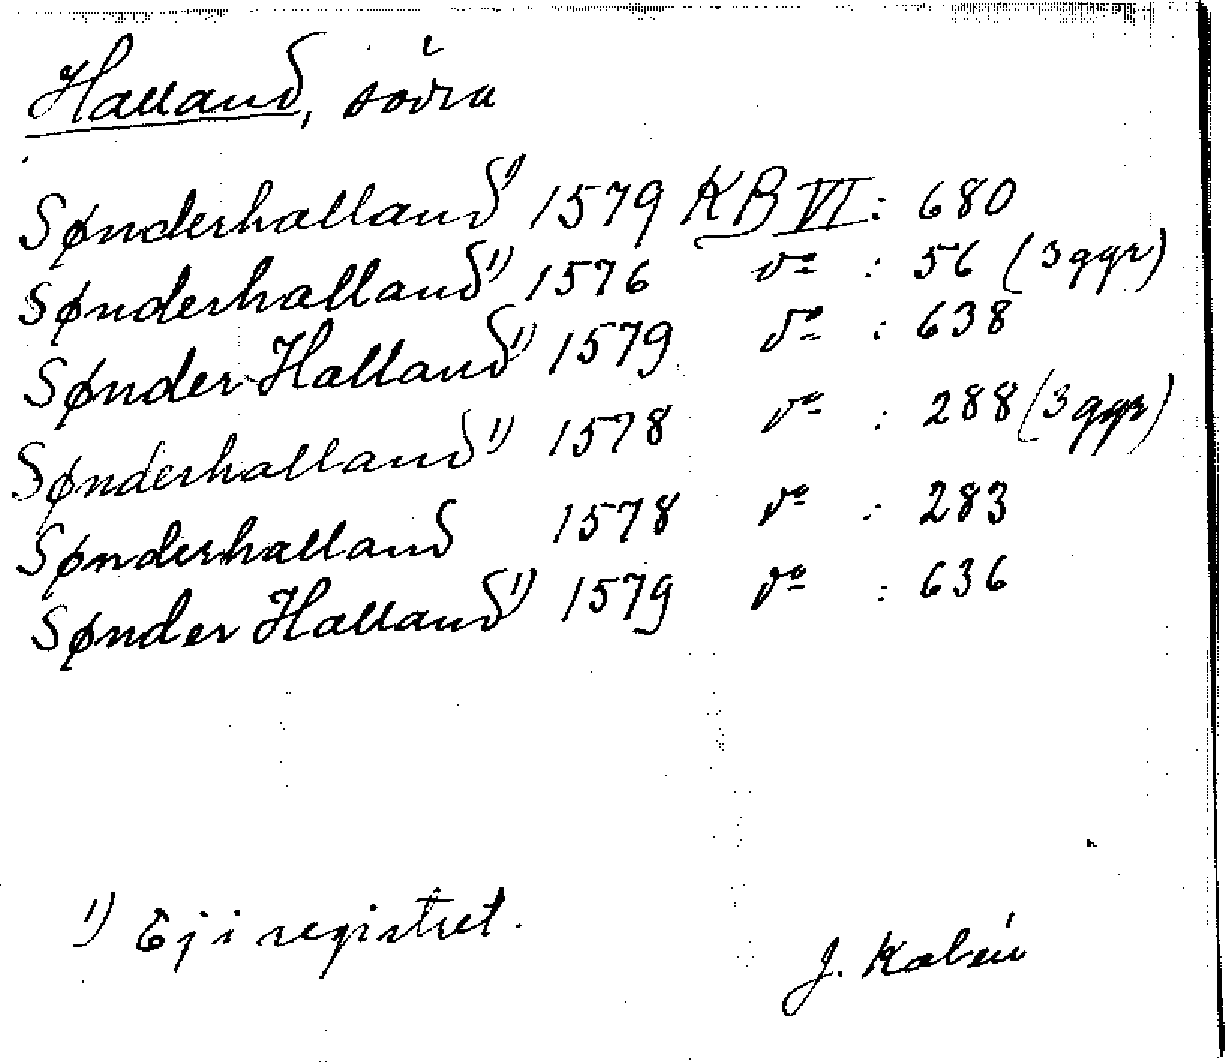 Halland, södra
Sønderhalland 1) 1579 KB VI : 680
Sønderhalland 1) 1576 do : 56 (3 ggr)
Sønder-Halland 1) 1579 do : 638
Sønderhalland 1) 1578 do : 288 (3 ggr)
Sønderhalland 1578 do : 283
Sønder Halland 1) 1579 do : 636
1) Ej i registret.
J. Kalén